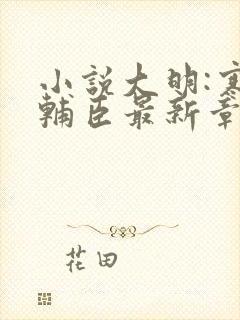 小說大明:寒
輔臣最新章
花田